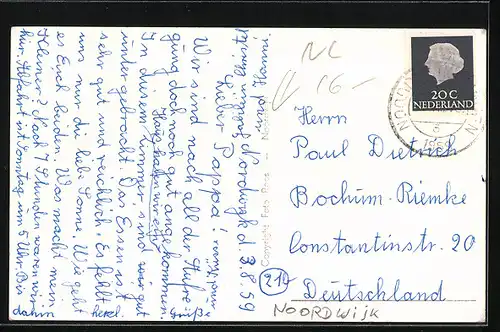 Noordwijk d. 3.8.59
Lieber Pappa!
Wir sind nach all der
gung doch noch gut angekommen.
In diesem Zimmer sind wir gut
untergebracht. Das Essen ist
sehr gut und reichlich. Es fehlt
uns nur die liebe Sonne. Wie geht
es Euch beiden. Was macht mein
Kleiner? Nach 7 Stunden waren wir
hier. Abfahrt ist Sonntag um 5 Uhr. Bis
dahin herzl. Grüße
und
NL
16-
20 C
NEDERLAND
Herrn
Paul Dietrich
Bochum-Riemke
Constantinstr. 20
Deutschland
214
NOORDWIJK
Copyright Foto